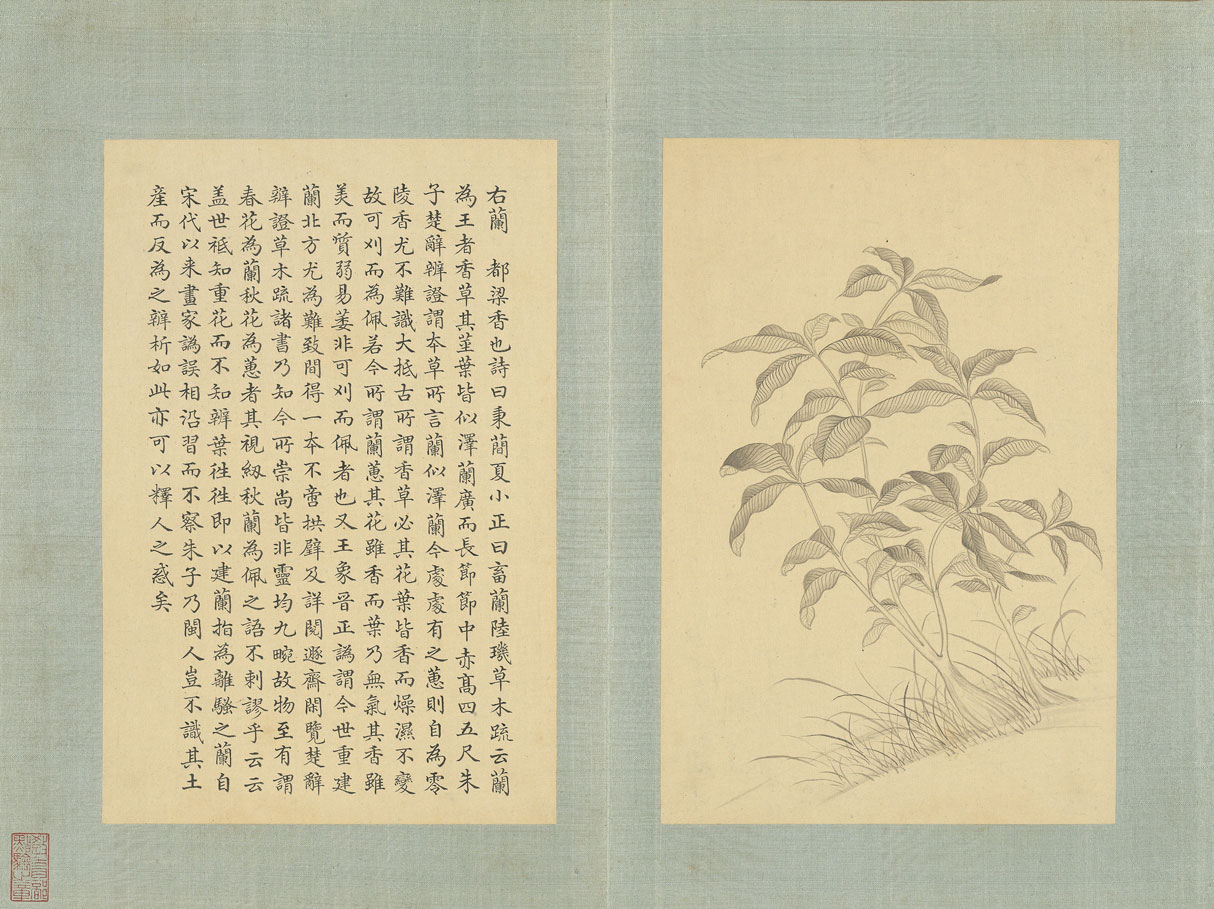 右蘭　都梁香也詩曰秉蕑夏小正曰畜蘭陸璣草木疏云蘭
為王者香草其莖葉皆似澤蘭廣而長節節中赤高四五尺朱
子楚辭辨證謂本草所言蘭似澤蘭今處處有之蕙則自為零
陵香尤不難識大抵古所謂香草必其花葉皆香而燥濕不變
故可刈而為佩若今所謂蘭蕙其花雖香而葉乃無氣其香雖
美而質弱易萎非可刈而佩者也又王象晉正譌謂今世重建
蘭北方尤為難致間得一本不啻拱璧及詳閱遯齋閑覽楚辭
辨證草木疏諸書乃知今所崇尚皆非靈均九畹故物至有謂
春花為蘭秋花為蕙者其視紉秋蘭為佩之語不刺謬乎云云
盖世祗知重花而不知辨葉徃徃即以建蘭指為離騷之蘭自
宋代以来畫家譌誤相沿習而不察朱子乃閩人豈不識其土
産而反為之辨析如此亦可以釋人之惑矣